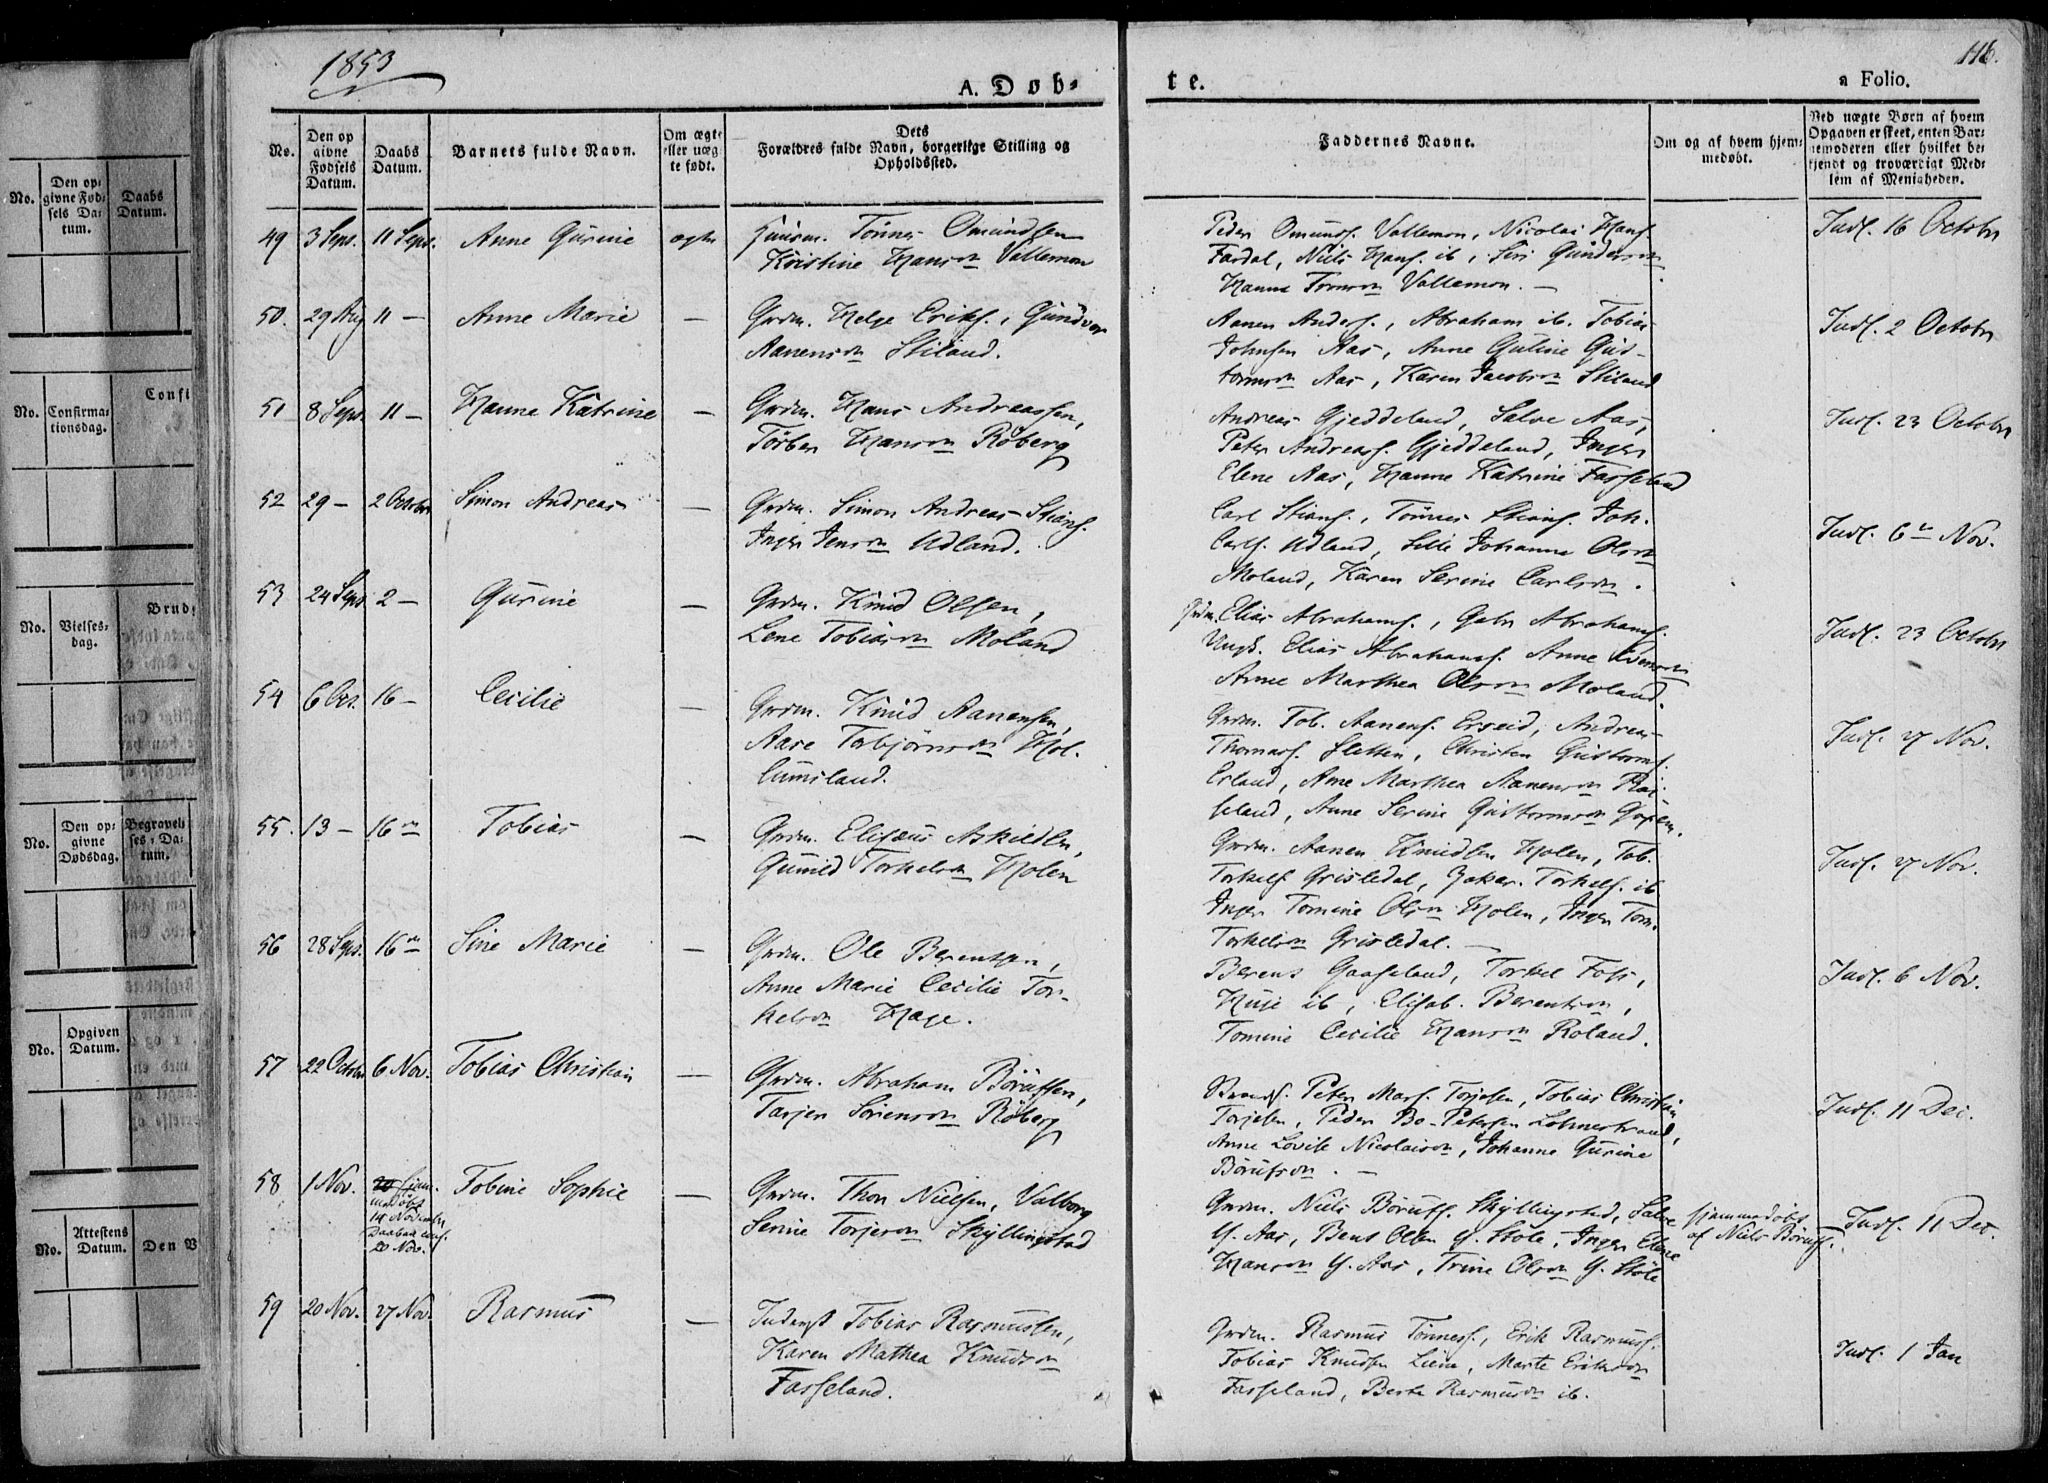 1853
116.
A. Døb-
te.
a Folio.
No.
Den op
givne
Fødsels
Datum.
Daabs
Datum.
Barnets fulde Navn.
Om ægte
eller uæg
te født.
Dets
Forældres fulde Navn, borgerlige Stilling og
Opholdssted.
Faddernes Navne.
Om og af hvem hjem-
medøbt.
Ved uægte Børn af hvem
Opgaven er skeet, enten Bar-
nemoderen eller hvilket be-
kjendt og troværdigt Med-
lem af Menigheden.
49 3 Sept. 11 Sept. Anne Gurine ægte
Huusm. Tönnes Omundsen
Kristine Hansdn Vallemon
Peder Omunds. Vallemon, Nicolai Hans.
Fardal, Niels Hans. ib, Siri Gundersdn
Hanna Tomsdn Vallemon. —
Indf. 16 Octobr
50. 29 Aug 11 — Anne Marie —
Grdm. Helge Eriks., Gundvor
Aanensdn Stiland.
Aanen Anders., Abraham ib. Tobias
Johnsen Aas, Anne Guline Gut-
tormsdn Aas, Karen Jacobsdn Stiland
Indf. 2 Octobr
51 8 Sept. 11 — Hanna Katrine —
Grdm. Hans Andreassen,
Torber Hansdn Röberg
Andreas Gjeddeland, Salve Aas,
Peter Andreas. Gjeddeland, Inger
Elene Aas, Hanne Katrine Fasseland
Indf. 23 Octobr
52 29 — 2 Octobr Simon Andreas —
Grdm. Simon Andreas Stians.
Inger Jensdn Udland.
Carl Stians., Tönnes Stians. Joh.
Carls. Udland, Sille Johanna Olsdn
Moland, Karen Serine Carlsdn.
Indf. 6 Nov.
53 24 Sept. 2 — Gurine —
Grdm. Knud Olsen,
Lene Tobiasdn Moland
Grdm. Elias Abrahams., Gabr Abrahams.
Ungk. Elias Abrahams. Anne
Anne Marthea Olsdn Moland.
Indf. 23 Octobr
54 6 Oct. 16 — Cecilie —
Grdm. Knud Aanensen,
Aase Torbjörnsdn Hol-
lumsland.
Grdm. Tob. Aanens. Erseid, Andreas
Thomass. Sletten, Christen Guttorms.
Erland, Anne Marthea Aanensdn
Anne Serine Guttormsdn
Indf. 27 Nov.
55. 13 — 16 Tobias —
Grdm. Elisæus Askildsen,
Gunild Torkelsdn Holen
Grdm. Aanen Knudsen Holen, Tob.
Torkels. Grisledal, Torkels. ib
Inger Tomine Olsdn Holen, Inger Tom.
Torkelsdn Grisledal. —
Indf. 27 Nov.
56 28 Sept. 16 Sine Marie —
Grdm. Ole Berentsen,
Anne Marie Cecilie Tor-
kelsdn Hage.
Berent Gaaseland, Torkel Foss,
ib, Elisab. Berentsdn,
Tomine Cecilie Hansdn Roland.
Indf. 6 Nov.
57 22 Octobr 6 Nov. Tobias Christian —
Grdm. Abraham Börufsen,
Tarjer Sörensdn Röberg
Peter Mart. Torjesen, Tobias Christian
Torjesen, Peder Bo- Petersen Lohnestrand,
Anne Lovise Nicolaisdn, Johanne Gurine
Börufsdn. —
Indf. 11 Dec.
58 1 Nov. hjem-
medöbt
14 November
20 Nov.
Tobine Sophie —
Grdm. Thor Nielsen, Valborg
Serine Torjersdn Skyllingstad
Grdm. Niels Börufs. Skyllingstad, Salve
G. Aas, Bent Olsen G. Stöle, Inger Elene
Hansdn G. Aas, Trine Olsdn G. Stöle
hjemmedöbt
af Niels Börufs.
Indf. 11 Dec.
59 20 Nov. 27 Nov. Rasmus —
Inderst Tobias Rasmussen,
Karen Mathea Knudsdn
Fasseland.
Grdm. Rasmus Tönness., Erik Rasmuss.
Tobias Knudsen Liene, Marte Eriksdn
Fasseland, Berte Rasmusdn ib.
Indf. 1 Jan
No.
Den op-
givne Fød-
sels Da-
tum.
Daabs
Datum.
No.
Confirma-
tionsdag.
Confi
No.
Vielses-
dag.
Brudg
No.
Den op-
givne
Dødsdag.
Begravel-
ses-Da-
tum.
No.
Opgiven
Datum.
No.
Attestens
Datum.
Den V